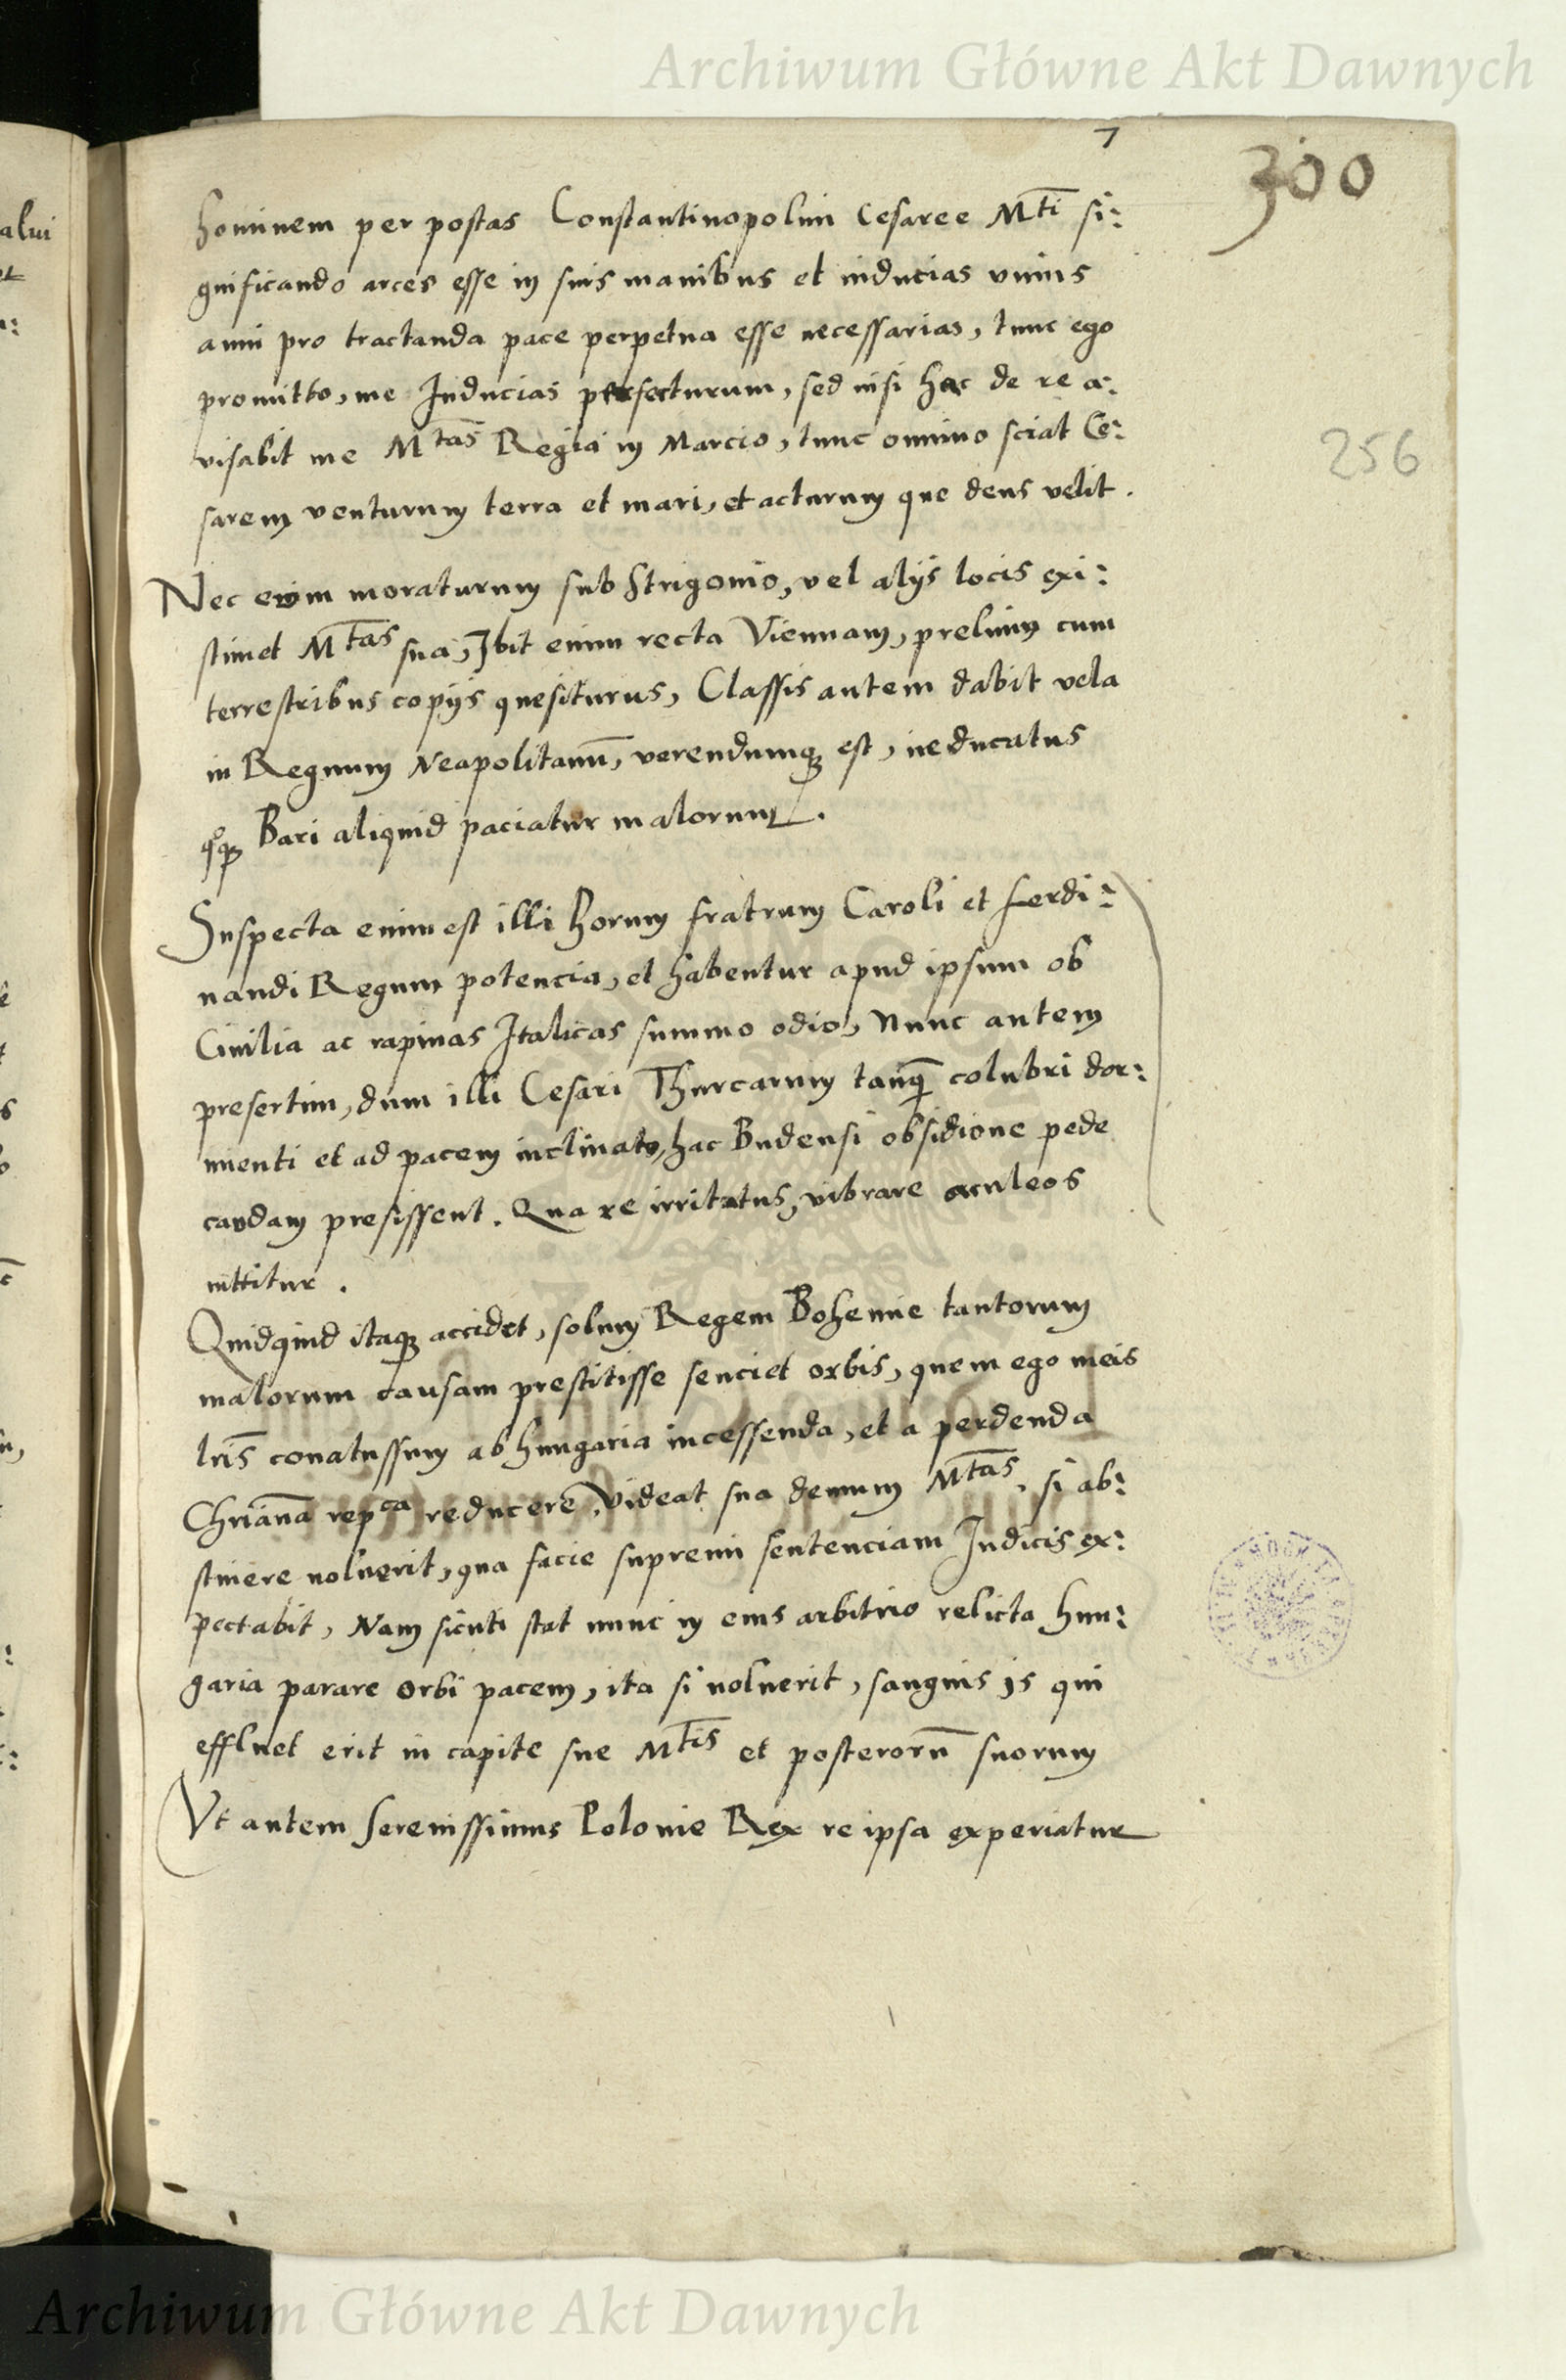 Archiwum Główne Akt Dawnych
7
300
hominem per postas Constantinopolim Cesaree Mti si:
gnificando arces esse in suis manibus et inducias unius
anni pro tractanda pace perpetua esse necessarias, tunc ego
promitto, me Inducias perfecturum, sed nisi hac de re a:
visabit me Mtas Regia in Marcio, tunc omnino sciat Ce:
256
sarem venturum terra et mari, et acturum que deus velit.
Nec eum moraturum sub Strigonio, vel alijs locis exi:
stimet Mtas sua, Ibit enim recta Viennam, prelium cum
terrestribus copijs quesiturus, Classis autem dabit vela
in Regnum Neapolitanū, verendumq est, ne ducatus
qoq Bari aliquid paciatur malorum.
Suspecta enim est illi horum fratrum Caroli et Ferdi:
nandi Regum potencia, et habentur apud ipsum ob
Civilia ac rapinas Italicas summo odio, Nunc autem
presertim, dum illi Cesari Thurcarum tanq̄ colubri dor:
mienti et ad pacem inclinato, hac Budensi obsidione pede
caudam presissent. Qua re irritatus, vibrare aculeos
nittitur.
Quidquid itaq accidet, solum Regem Bohemie tantorum
malorum causam prestitisse senciet orbis, quem ego meis
lris conatus sum ab hungaria incessenda, et a perdenda
Chrianā repca reducere, Videat sua demum Mtas, si ab:
stinere noluerit, qua facie supremi sentenciam Iudicis ex:
pectabit, Nam sicuti stat nunc in eius arbitrio relicta hun:
garia parare orbi pacem, ita si noluerit, sanguis is qui
effluet erit in capite sue Mtis et posterorū suorum
Vt autem Serenissimus Polonie Rex re ipsa experiatur
Archiwum Główne Akt Dawnych